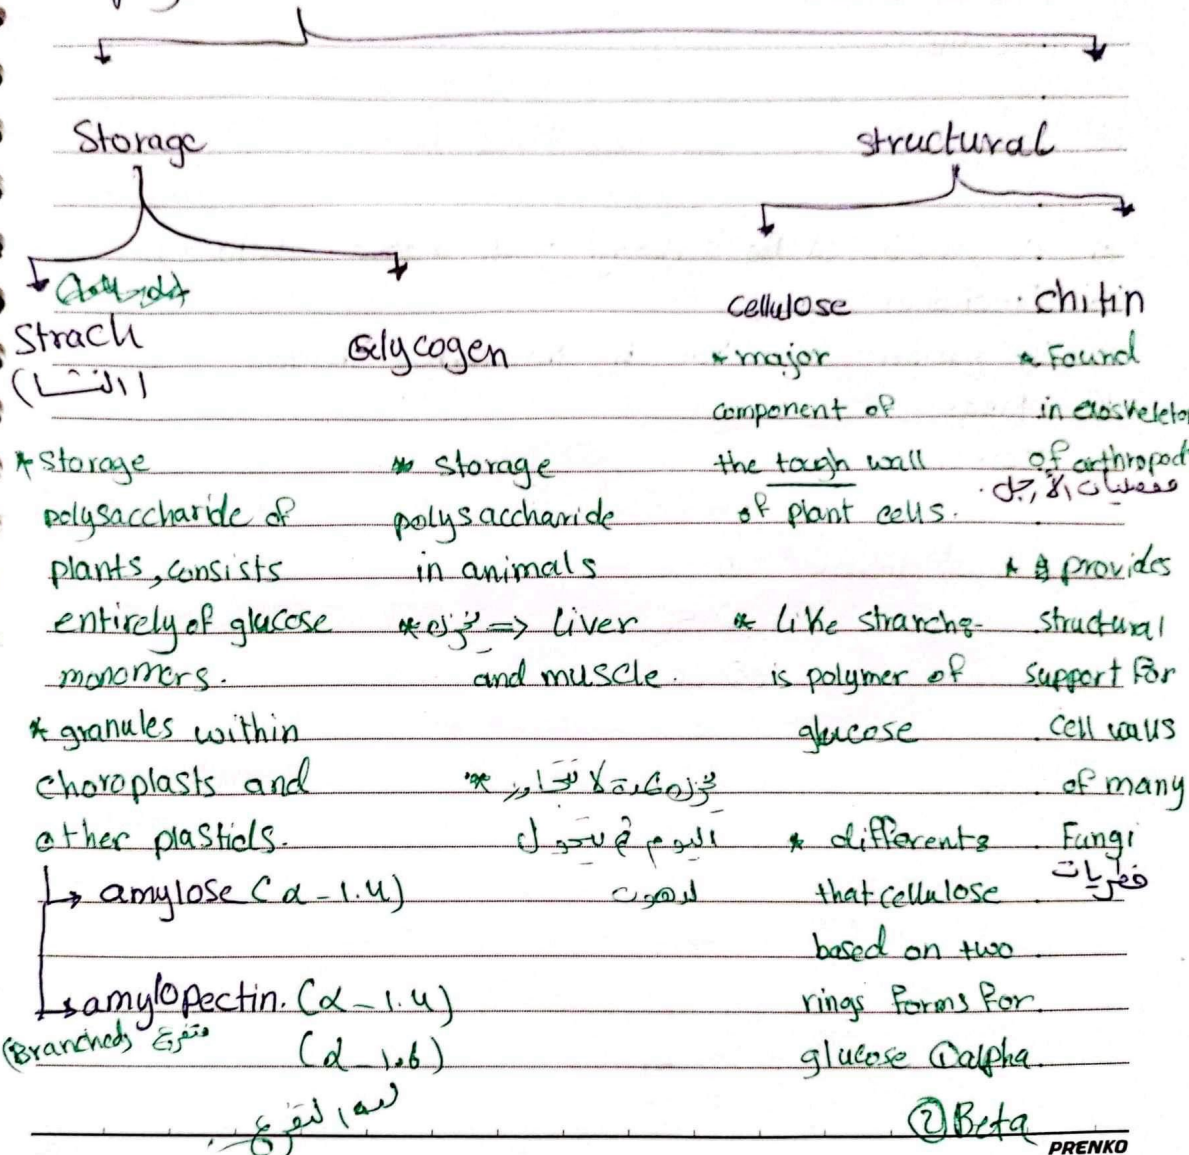 Storage
structural
Strach
(النشا)
Glycogen
cellulose
chitin
* Storage
polysaccharide of
plants, consists
entirely of glucose
monomers.
* granules within
choroplasts and
other plastids.
↳ amylose (α-1.4)
↳ amylopectin. (α-1.4)
(Branched) متفرع
(α-1.6)
* storage
polysaccharide
in animals
* يخزن => liver
and muscle.
* يخزن لا تتجاوز
اليوم ثم يتحول
لدهون
* major
component of
the tough wall
of plant cells.
* Like strarch:-
is polymer of
glucose
* different:
that cellulose
based on two
rings forms for
glucose ① alpha.
② Beta
* Found
in exoskeleton
of arthropod
مفصليات الأرجل.
* provides
structural
support for
cell walls
of many
Fungi
فطريات
PRENKO